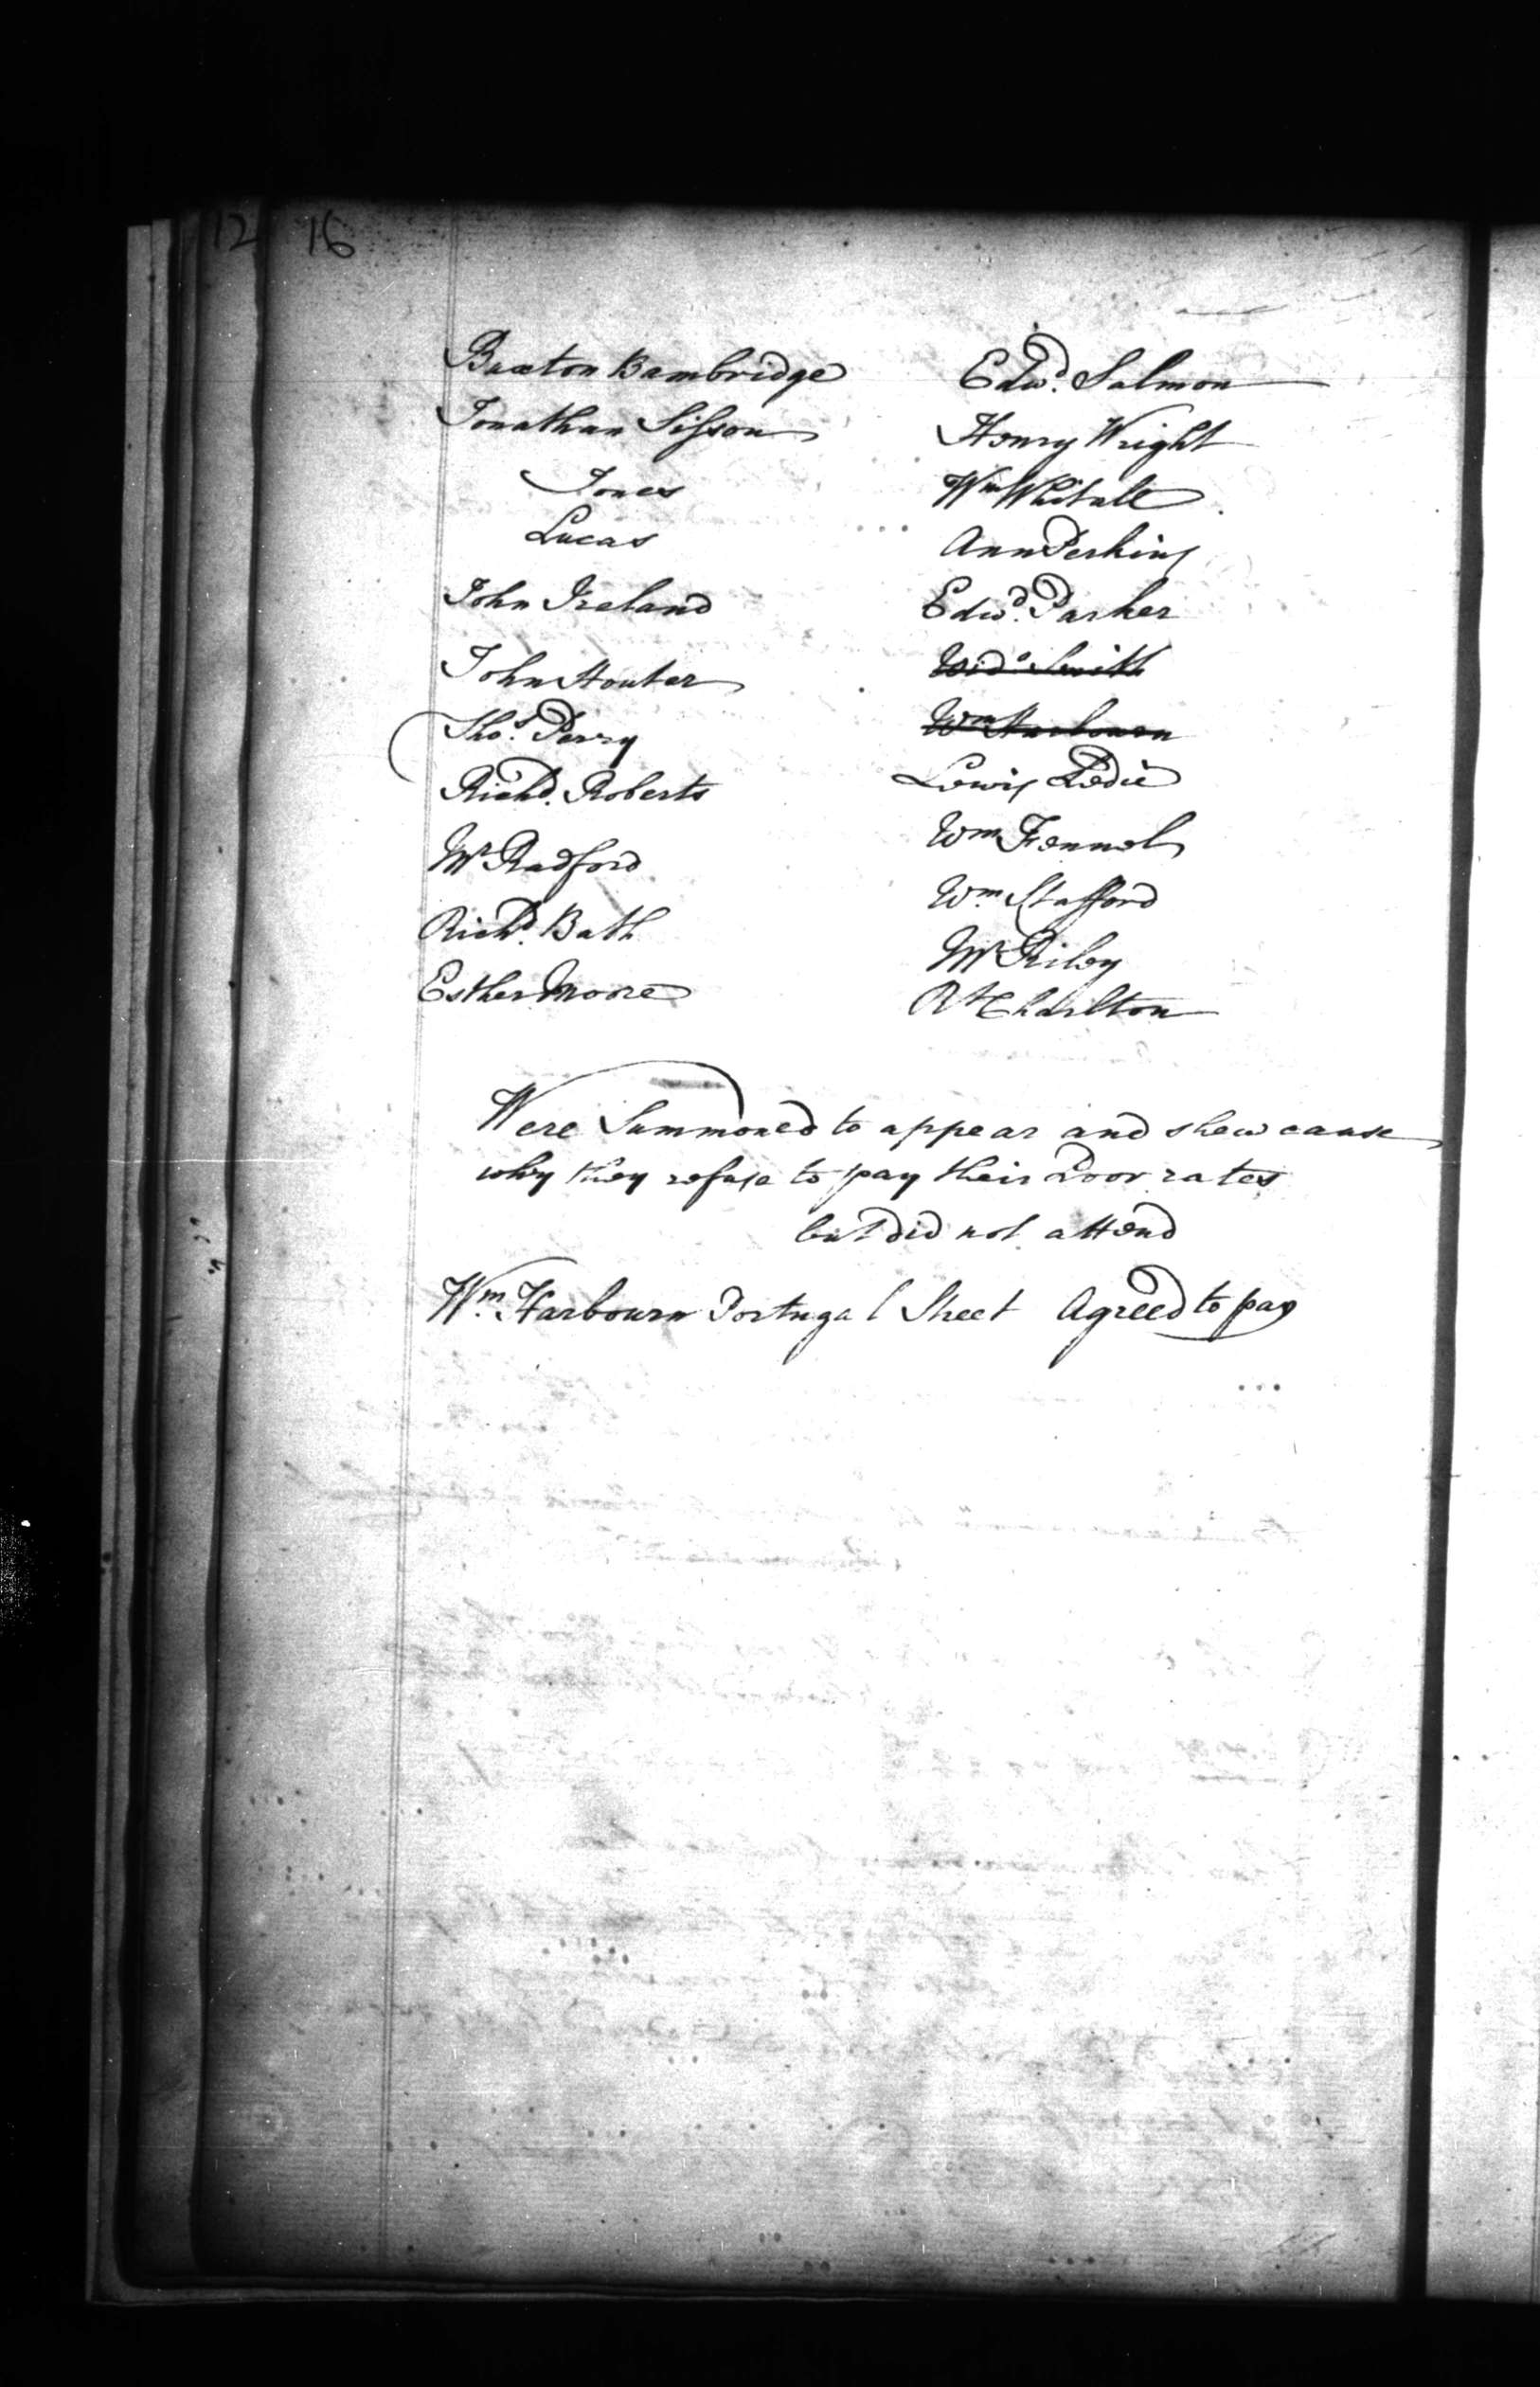 12 16
Buxton Bambridge
Jonathan Sisson
Jones
Lucas
John Ireland
John Houter
Thos. Perry
Richd. Roberts
Mr Radford
Richd. Bath
Esther Moore
Edwd. Salmon
Henry Wright
Wm Whitall
Ann Perkins
Edwd. Parker
Wido Smith
Wm Harbourn
Lewis Dedie
Wm Fennel
Wm. Stafford
Mr Riley
Rt Charlton
Were Summoned to appear and shew cause
why they refuse to pay their Poor rates
but did not attend
Wm. Harbourn Portugal Street Agreed to pay